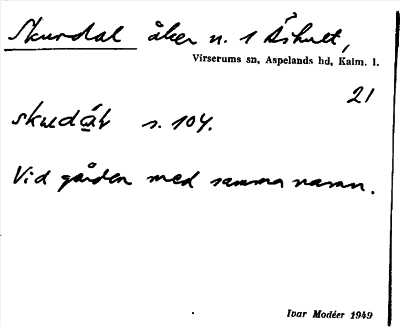 Skurdal åker n. 1 Åshult,
Virserums sn, Aspelands hd, Kalm. l.
21
s. 104.
Vid gården med samma namn.
Ivar Modéer 1949